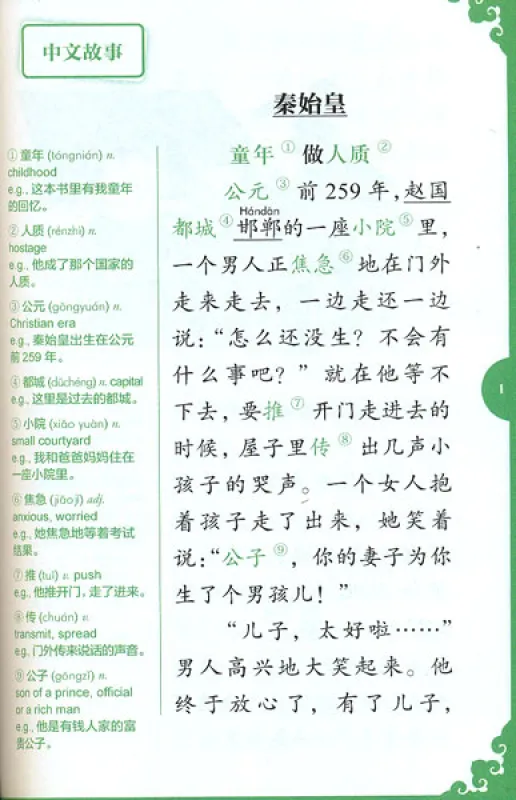 中文故事
秦始皇
童年①做人质②
公元③前259年，赵国
Hándàn
都城④邯郸的一座小院⑤里，
一个男人正焦急⑥地在门外
走来走去，一边走还一边
说：“怎么还没生？不会有
什么事吧？”就在他等不
下去，要推⑦开门走进去的
时候，屋子里传⑧出几声小
孩子的哭声。一个女人抱
着孩子走了出来，她笑着
说：“公子⑨，你的妻子为你
生了个男孩儿！”
“儿子，太好啦……”
男人高兴地大笑起来。他
终于放心了，有了儿子，
①童年 (tóngnián) n.
childhood
e.g., 这本书里有我童年
的回忆。
②人质 (rénzhì) n.
hostage
e.g., 他成了那个国家的
人质。
③公元 (gōngyuán) n.
Christian era
e.g., 秦始皇出生在公元
前259年。
④都城 (dūchéng) n. capital
e.g., 这里是过去的都城。
⑤小院 (xiǎo yuàn) n.
small courtyard
e.g., 我和爸爸妈妈住在
一座小院里。
⑥焦急 (jiāojí) adj.
anxious, worried
e.g., 她焦急地等着考试
结果。
⑦推 (tuī) v. push
e.g., 他推开门，走了进来。
⑧传 (chuán) v.
transmit, spread
e.g., 门外传来说话的声音。
⑨公子 (gōngzǐ) n.
son of a prince, official
or a rich man
e.g., 他是有钱人家的富
贵公子。
1